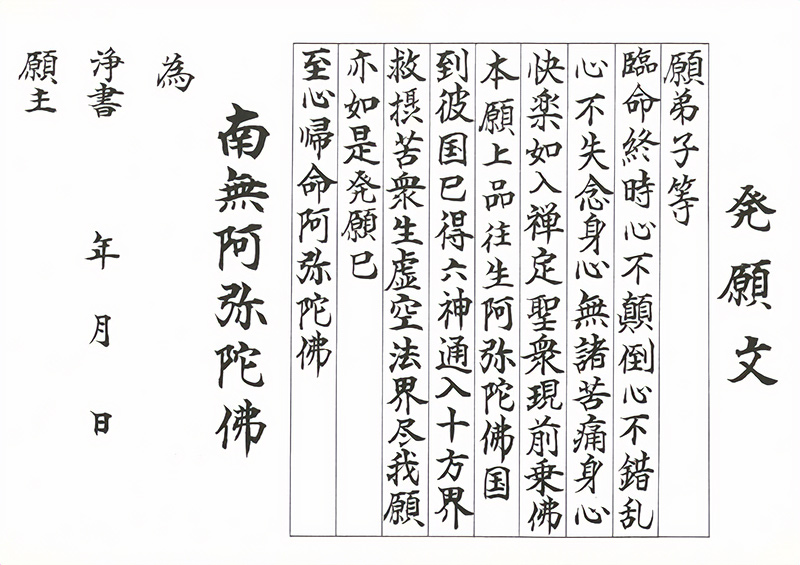 発願文
願弟子等
臨命終時心不顛倒心不錯乱
心不失念身心無諸苦痛身心
快楽如入禅定聖衆現前乗佛
本願上品往生阿弥陀佛国
到彼国已得六神通入十方界
救摂苦衆生虚空法界尽我願
亦如是発願已
至心帰命阿弥陀佛
南無阿弥陀佛
為
浄書 年 月 日
願主